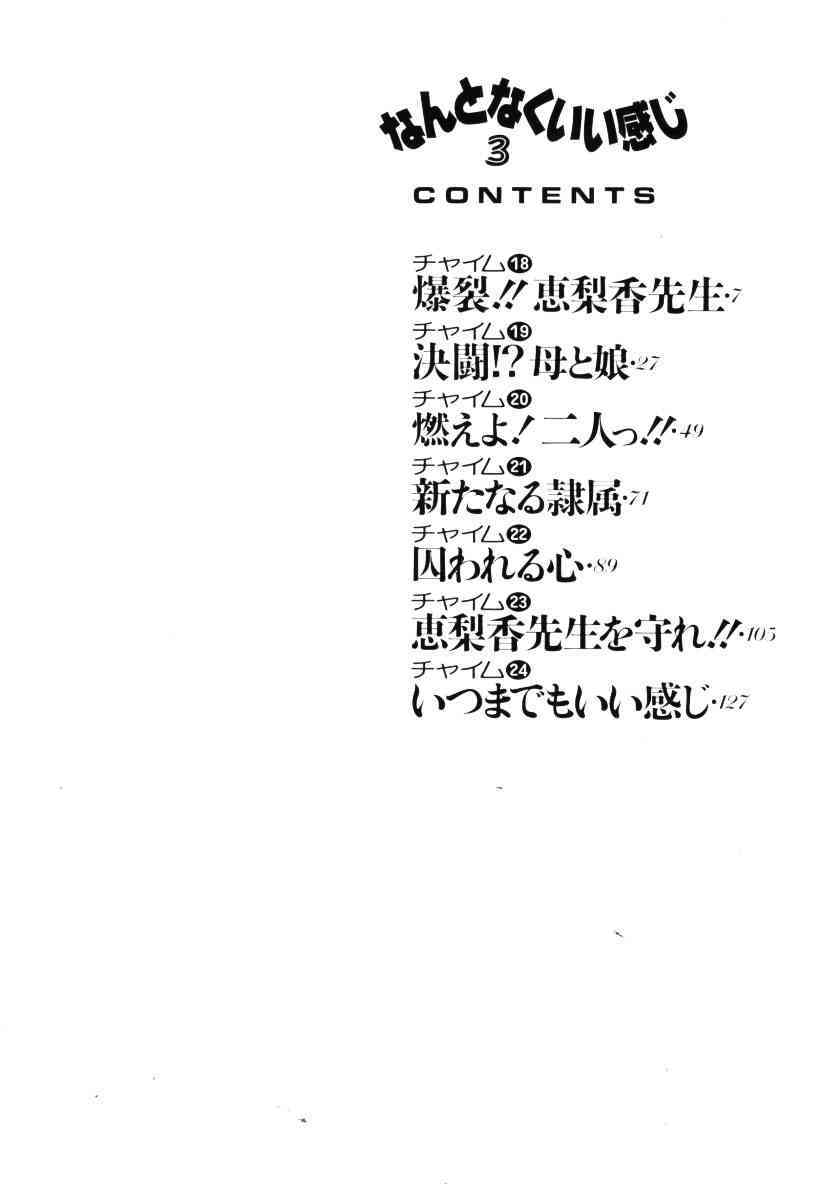 なんとなくいい感じ
3
CONTENTS
チャイム⓲
爆裂!! 恵梨香先生・7
チャイム⓳
決闘!? 母と娘・27
チャイム⓴
燃えよ! 二人っ!!・49
チャイム㉑
新たなる隷属・71
チャイム㉒
囚われる心・89
チャイム㉓
恵梨香先生を守れ!!・105
チャイム㉔
いつまでもいい感じ・127